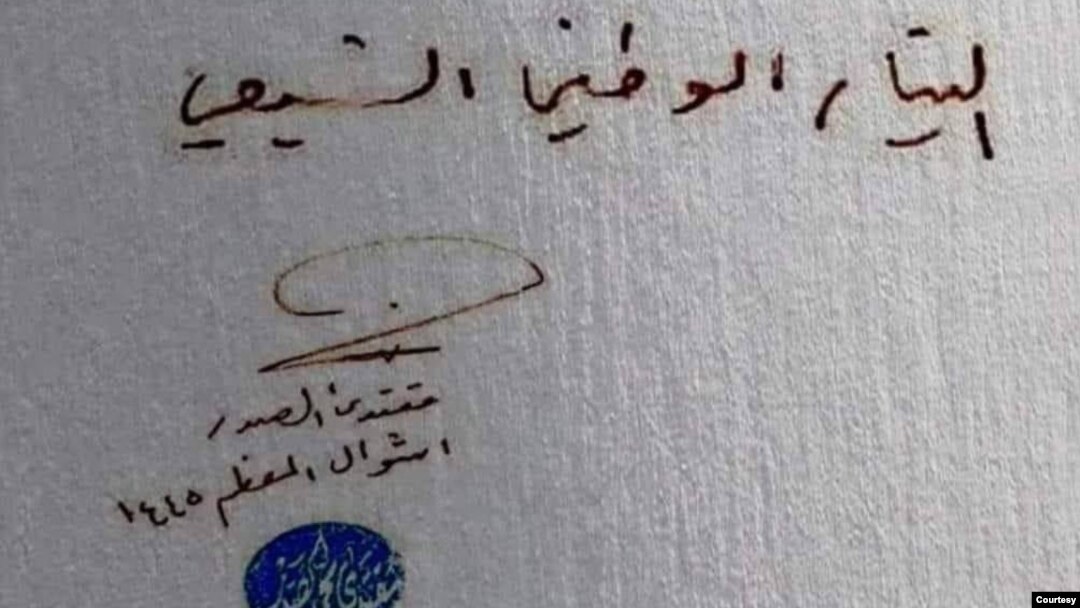 التيار الوطني الشيعي
مقتدى الصدر
١ شوال المعظم ١٤٤٥
مقتدى الصدر
Courtesy